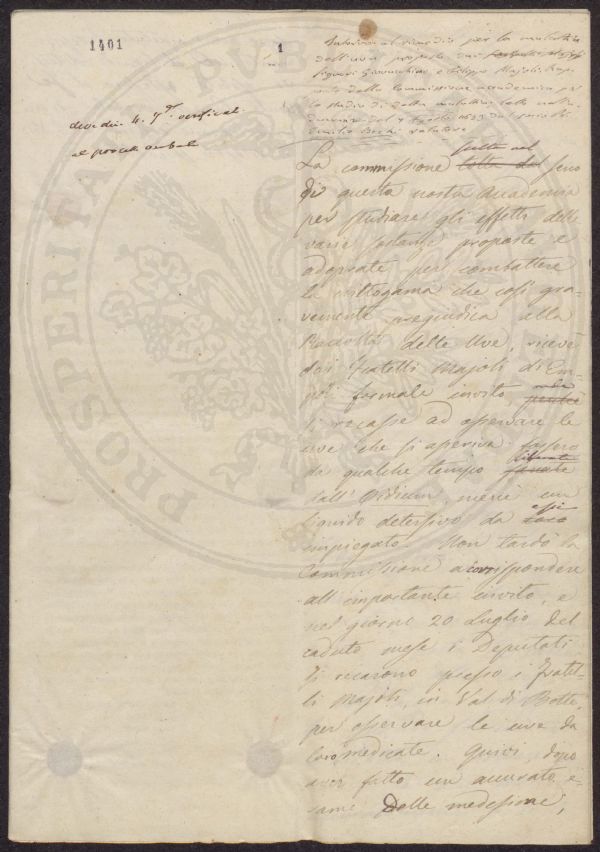 1401
1
per la malattia
dell'uva proposto dai
Signori Giovacchino e Filippo Majoli. Rap-
porto della Commissione accademica per
lo studio di della malattia
del 7 Agosto 1853
Emilio Bechi relatore
4. 7bre
scelta nel
La commissione tolta dal seno
di questa nostra Accademia
per studiare gli effetti delle
varie sostanze proposte e
adoprate per combattere
la crittogama che così gra-
vemente pregiudica alla
Raccolta delle Uve, riceve
dai Fratelli Majoli di Em-
poli formale invito,
si recasse ad osservare le
uve che si aperiva fussero
liberate
da qualche tempo sanate
dall'Oidium, mercè un
essi
liquido detersivo da loro
impiegato. Non tardò la
Commissione a corrispondere
all'importante invito, e
nel giorno 20 Luglio del
caduto mese i Deputati
si recarono presso i Fratel-
li Majoli, in Val di Botte,
per osservare le uve da
loro medicate. Quivi, dopo
aver fatto un accurato e-
same Delle medesime,
PROSPERITA
PUB